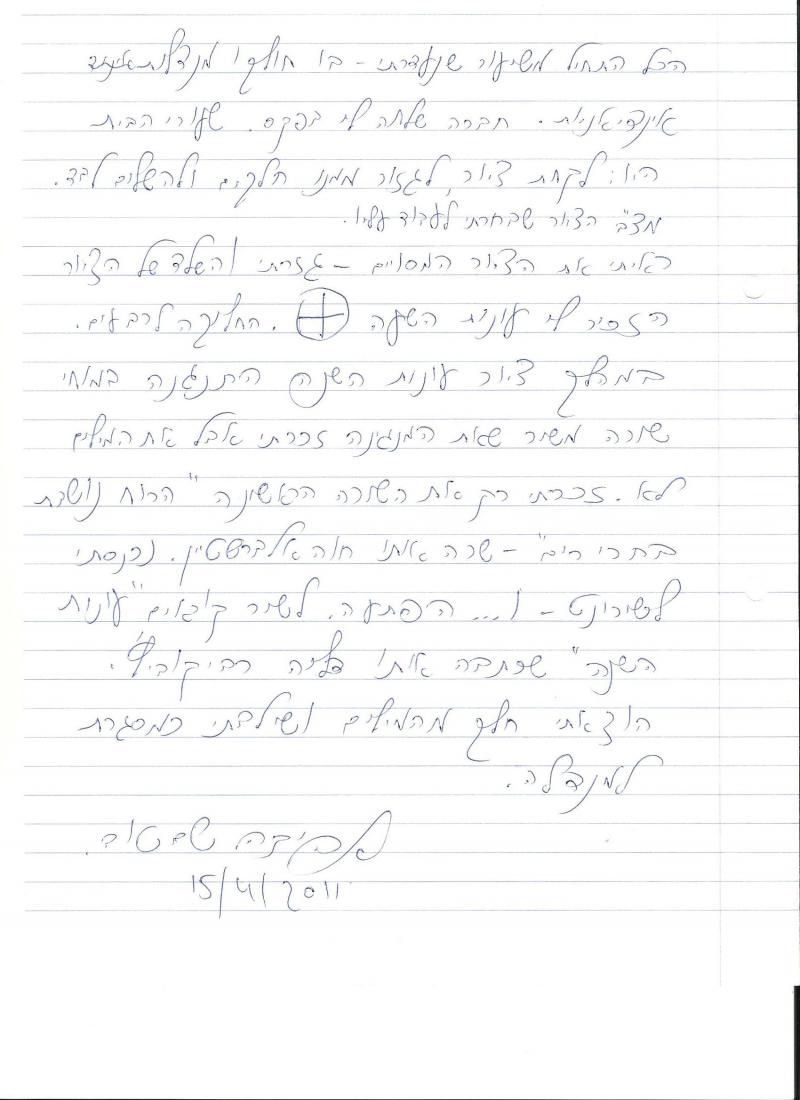 הכל התחיל משיעור שנעדרתי - בו חולקו מנדלות
אינדיאניות. חברה שלחה לי בפקס. שעורי הבית
היו: לקחת ציור, לגזור ממנו חלקים ולהשלים לבד.
מצ"ב הציור שבחרתי לעבוד עליו.
ראיתי את הציור המסויים - גזרתי והשלד של הציור
הזכיר לי עונות השנה. החלוקה לרבעים.
במהלך ציור עונות השנה התנגנה במוחי
שורה משיר שאת המנגינה זכרתי אבל את המילים
לא. זכרתי רק את השורה הראשונה "הרוח נושבת
בהרי הים" - שרה אותו חוה אלברשטיין. נכנסתי
לשירונט - ו... הפתעה. לשיר קוראים "עונות
השנה" שכתבה אותו דליה רביקוביץ.
הוצאתי חלק מהמילים ושילבתי כמסגרת
למנדלה.
אביבה שם טוב.
15/4/2011